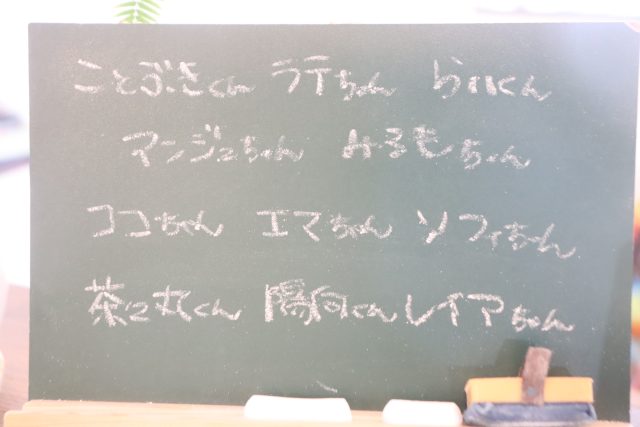 ことぶきくん ラテちゃん らいくん
マンジュちゃん みるもちゃん
ココちゃん エマちゃん ソフィちゃん
茶々丸くん 陽向くん レイアちゃん